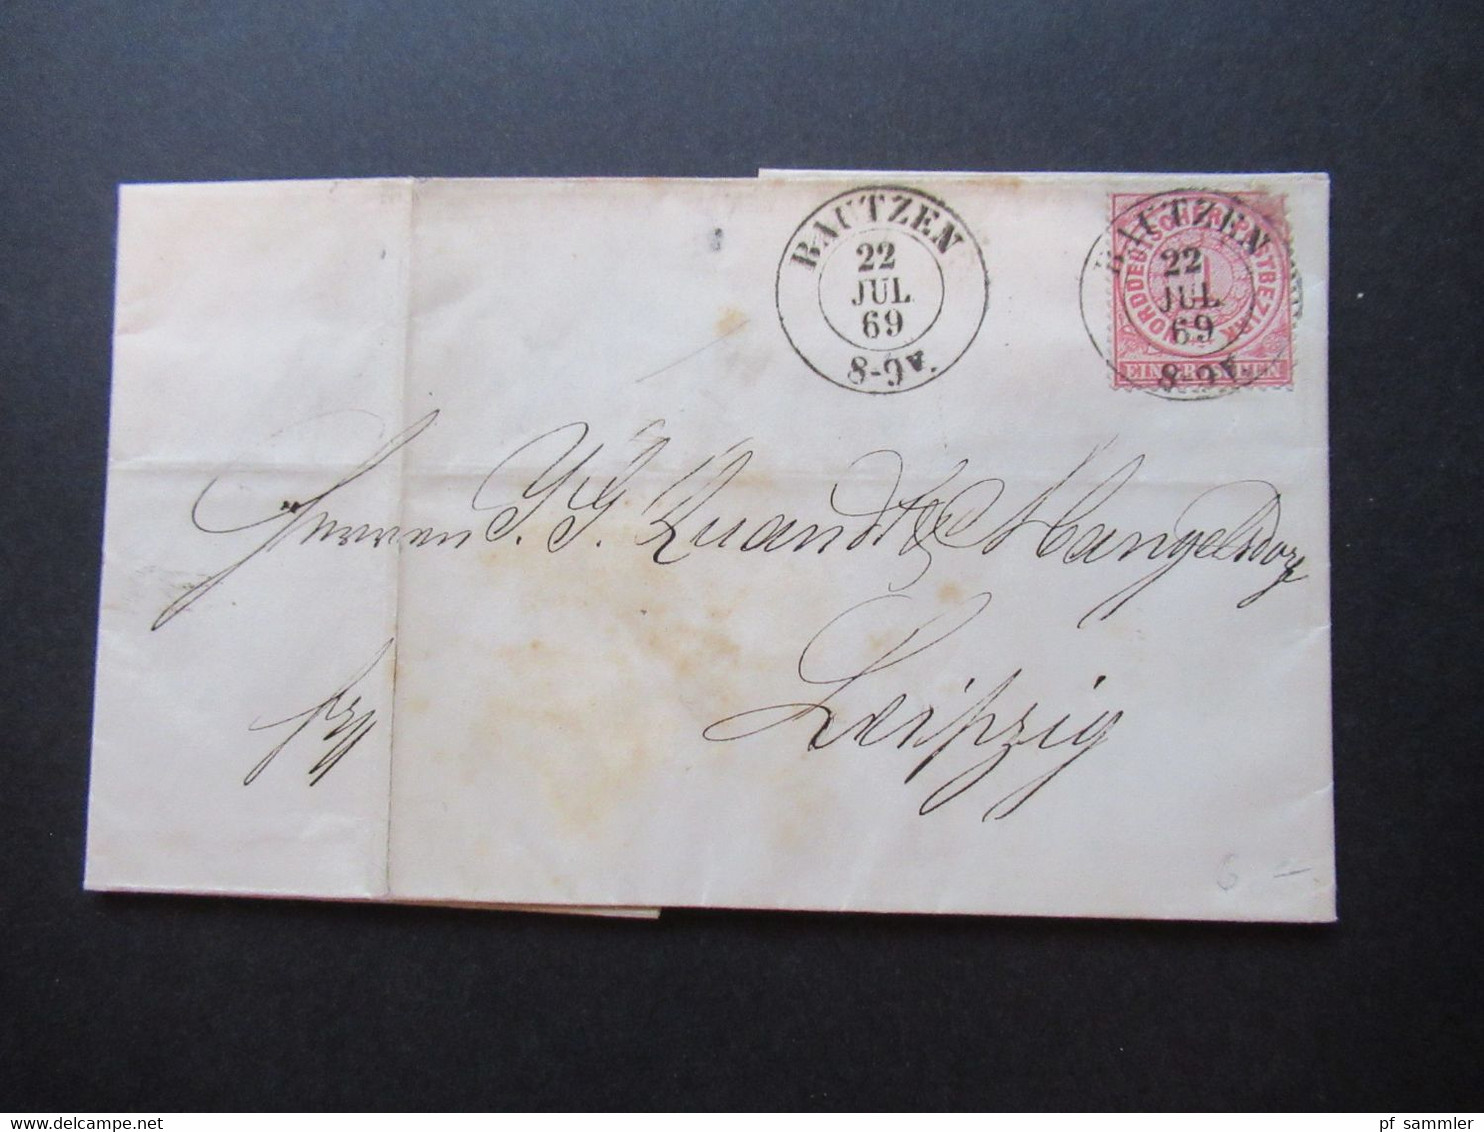 BAUTZEN
22
JUL
69
8-9V.
NORDDEUTSCHER POSTBEZIRK
1
EIN GROSCHEN
BAUTZEN
22
JUL
69
8-9V.
Herren J. G. Quandt & Mangelsdorf
Leipzig
6 –
delcampe.net
pf_sammler